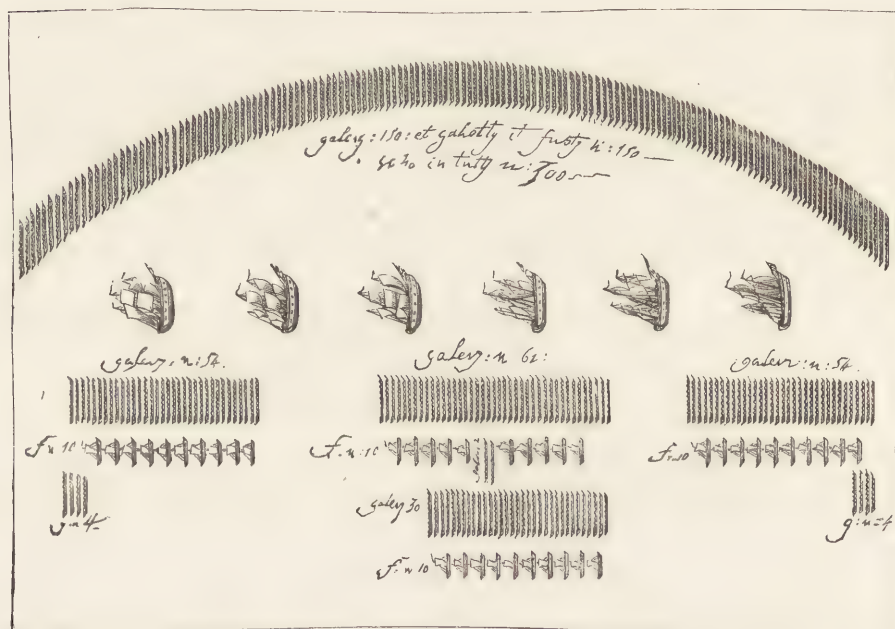 galerz: 150: et gahotty et fusty n: 150
in tutty n: 300
galerz: n: 54.
galerz: n 62:
galerz: n: 54.
f n 10
f. n: 10
f. n 10
g: n 4
galerz 30
g: n = 4
f. n 10